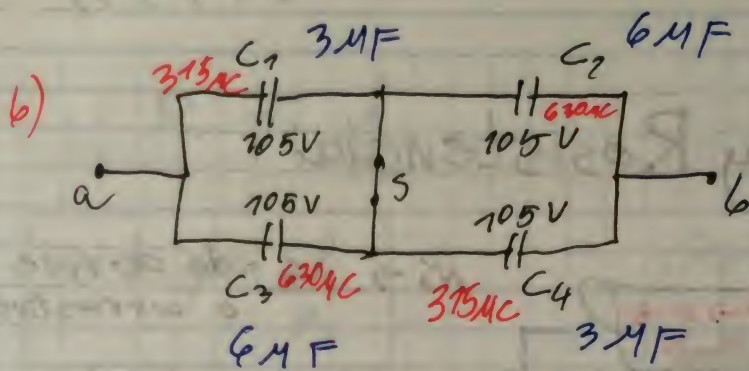 b)
C1 3MF
C2 6MF
315MC
630MC
105V
105V
a
S
b
105V
105V
C3 630MC
315MC C4
6MF
3MF